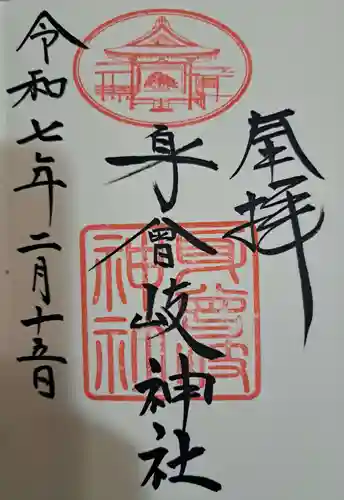 奉拝
身曾岐神社
身曾岐神社
令和七年二月十五日